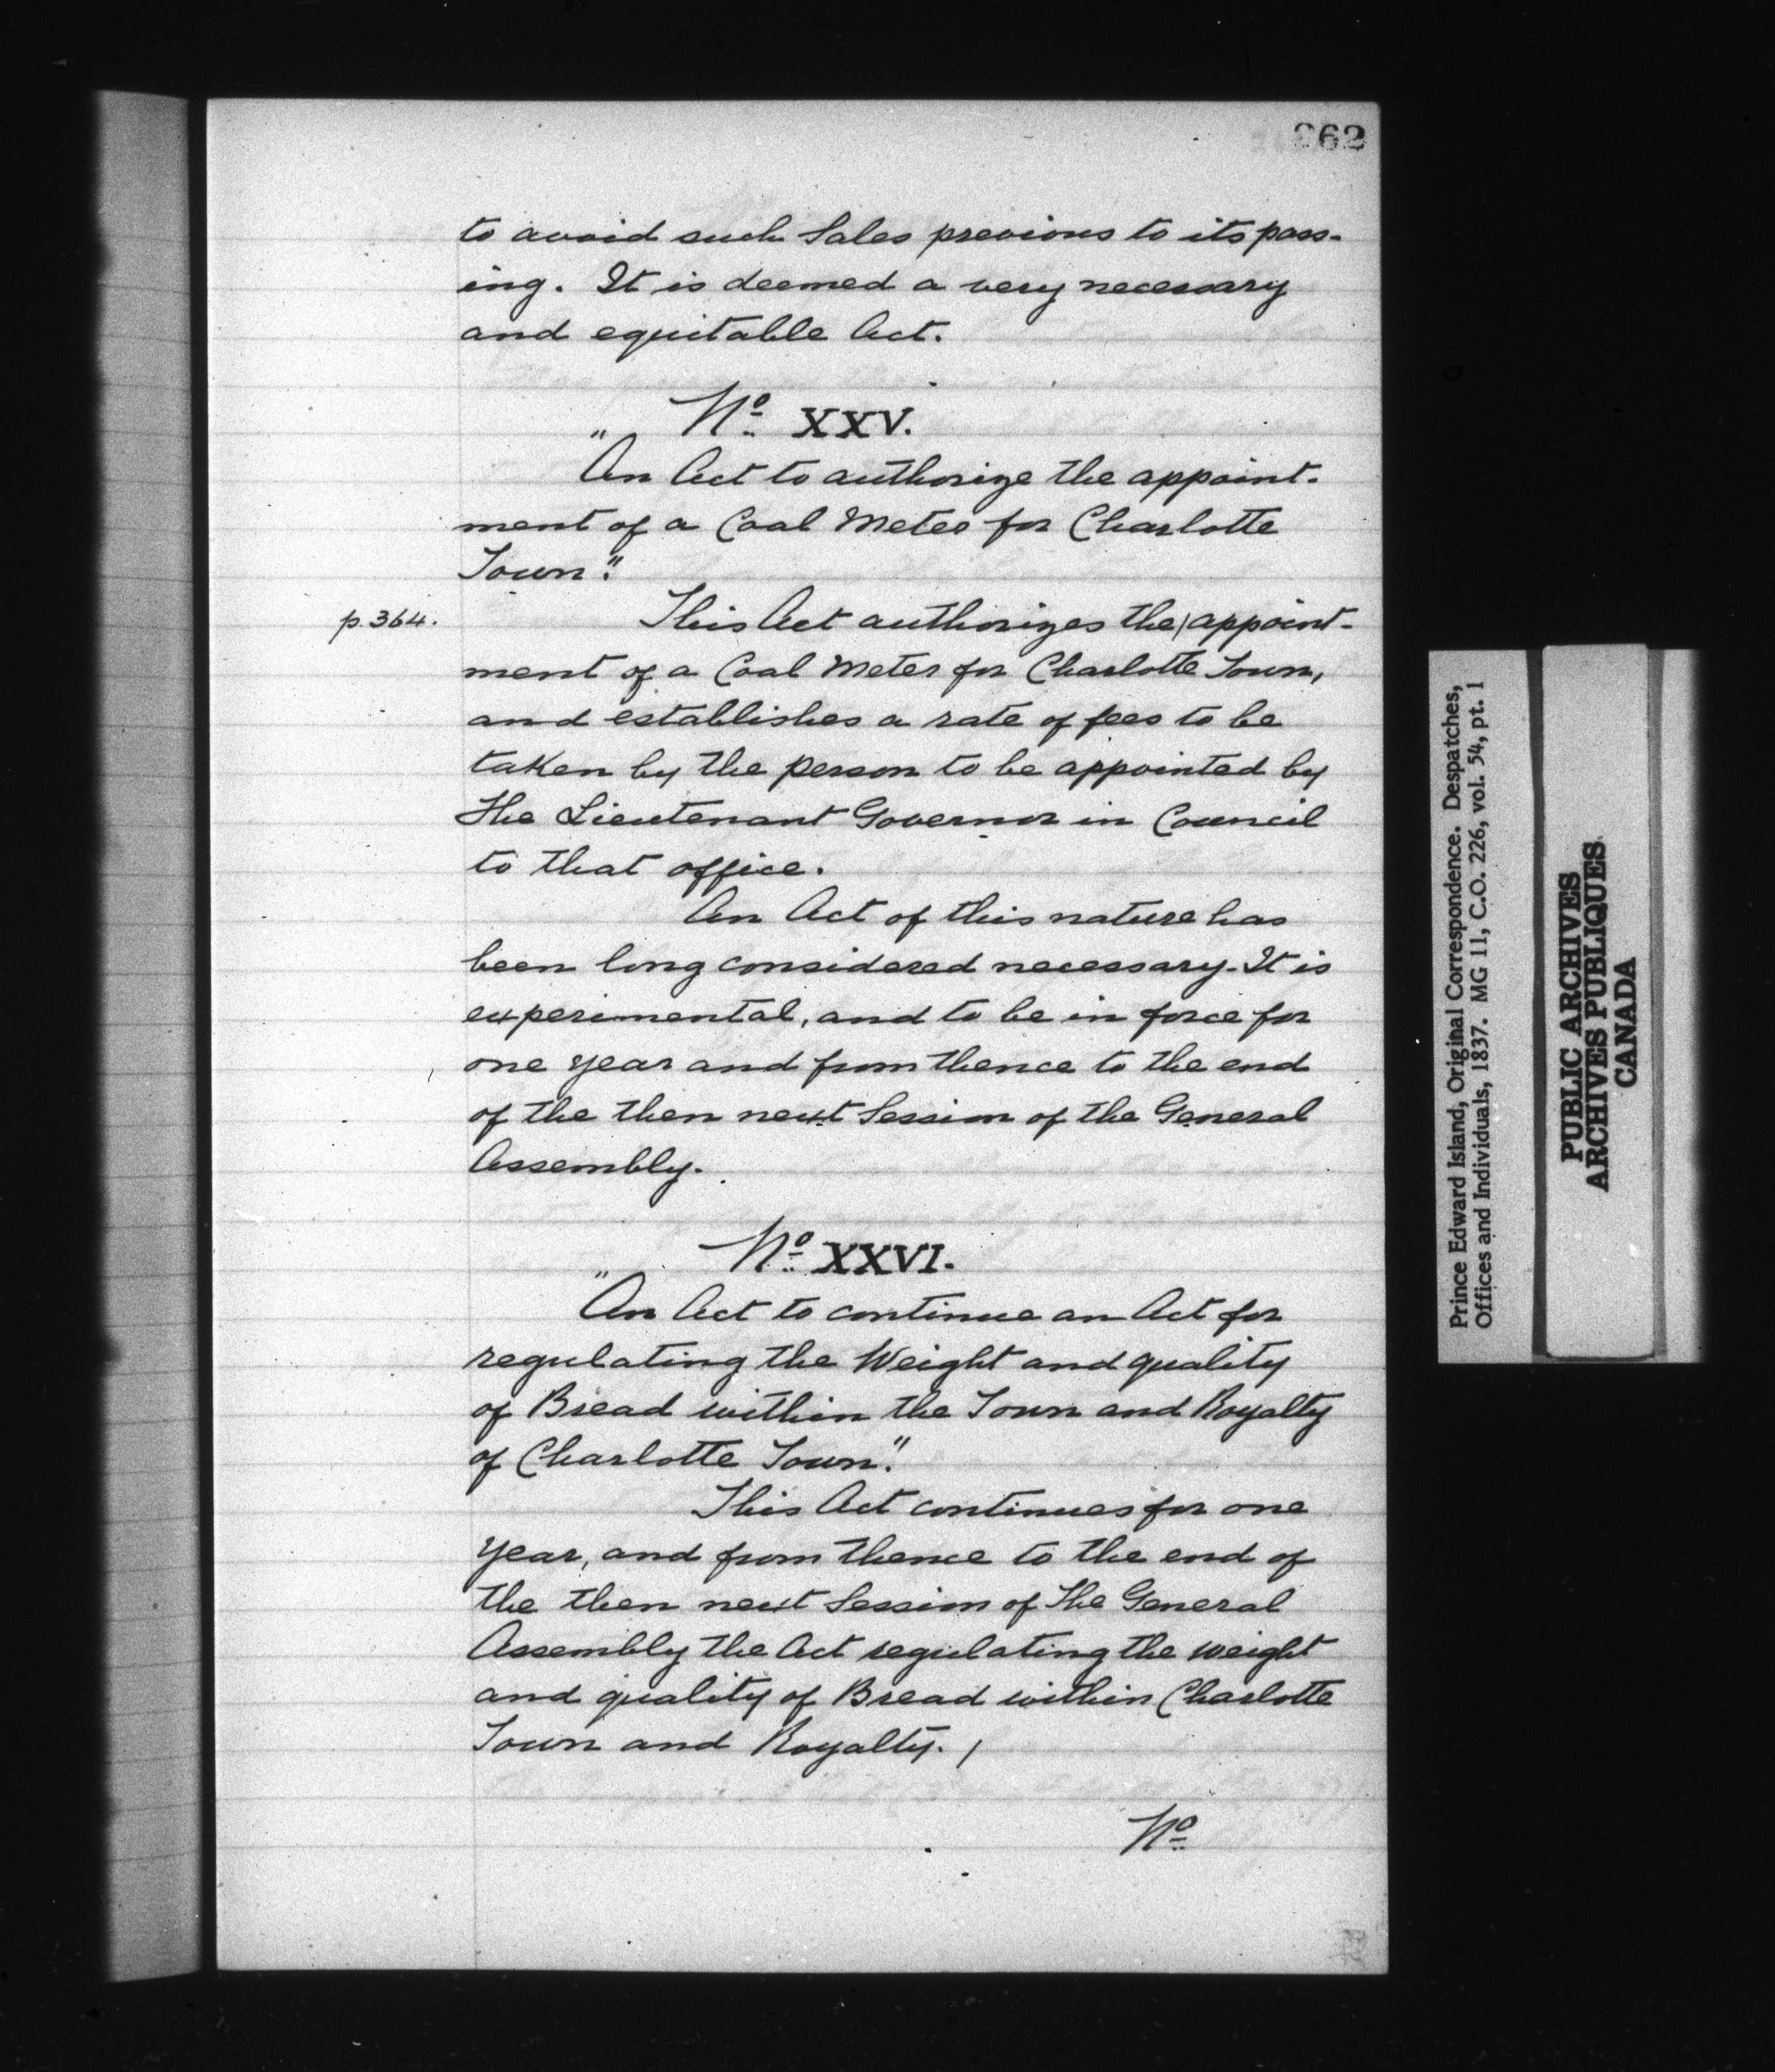 362
to avoid such Sales previous to its pass-
ing. It is deemed a very necessary
and equitable Act.
No. XXV.
"An Act to authorize the appoint-
ment of a Coal Meter for Charlotte
Town."
p. 364.
This Act authorizes the/appoint-
ment of a Coal Meter for Charlotte Town,
and establishes a rate of fees to be
taken by the person to be appointed by
the Lieutenant Governor in Council
to that office.
An Act of this nature has
been long considered necessary. It is
experimental, and to be in force for
one year and from thence to the end
of the then next Session of the General
Assembly.
No. XXVI.
"An Act to continue an Act for
regulating the Weight and quality
of Bread within the Town and Royalty
of Charlotte Town."
This Act continues for one
year, and from thence to the end of
the then next Session of the General
Assembly the Act regulating the weight
and quality of Bread within Charlotte
Town and Royalty. /
No
Prince Edward Island, Original Correspondence. Despatches,
Offices and Individuals, 1837. MG 11, C.O. 226, vol. 54, pt. 1
PUBLIC ARCHIVES
ARCHIVES PUBLIQUES
CANADA